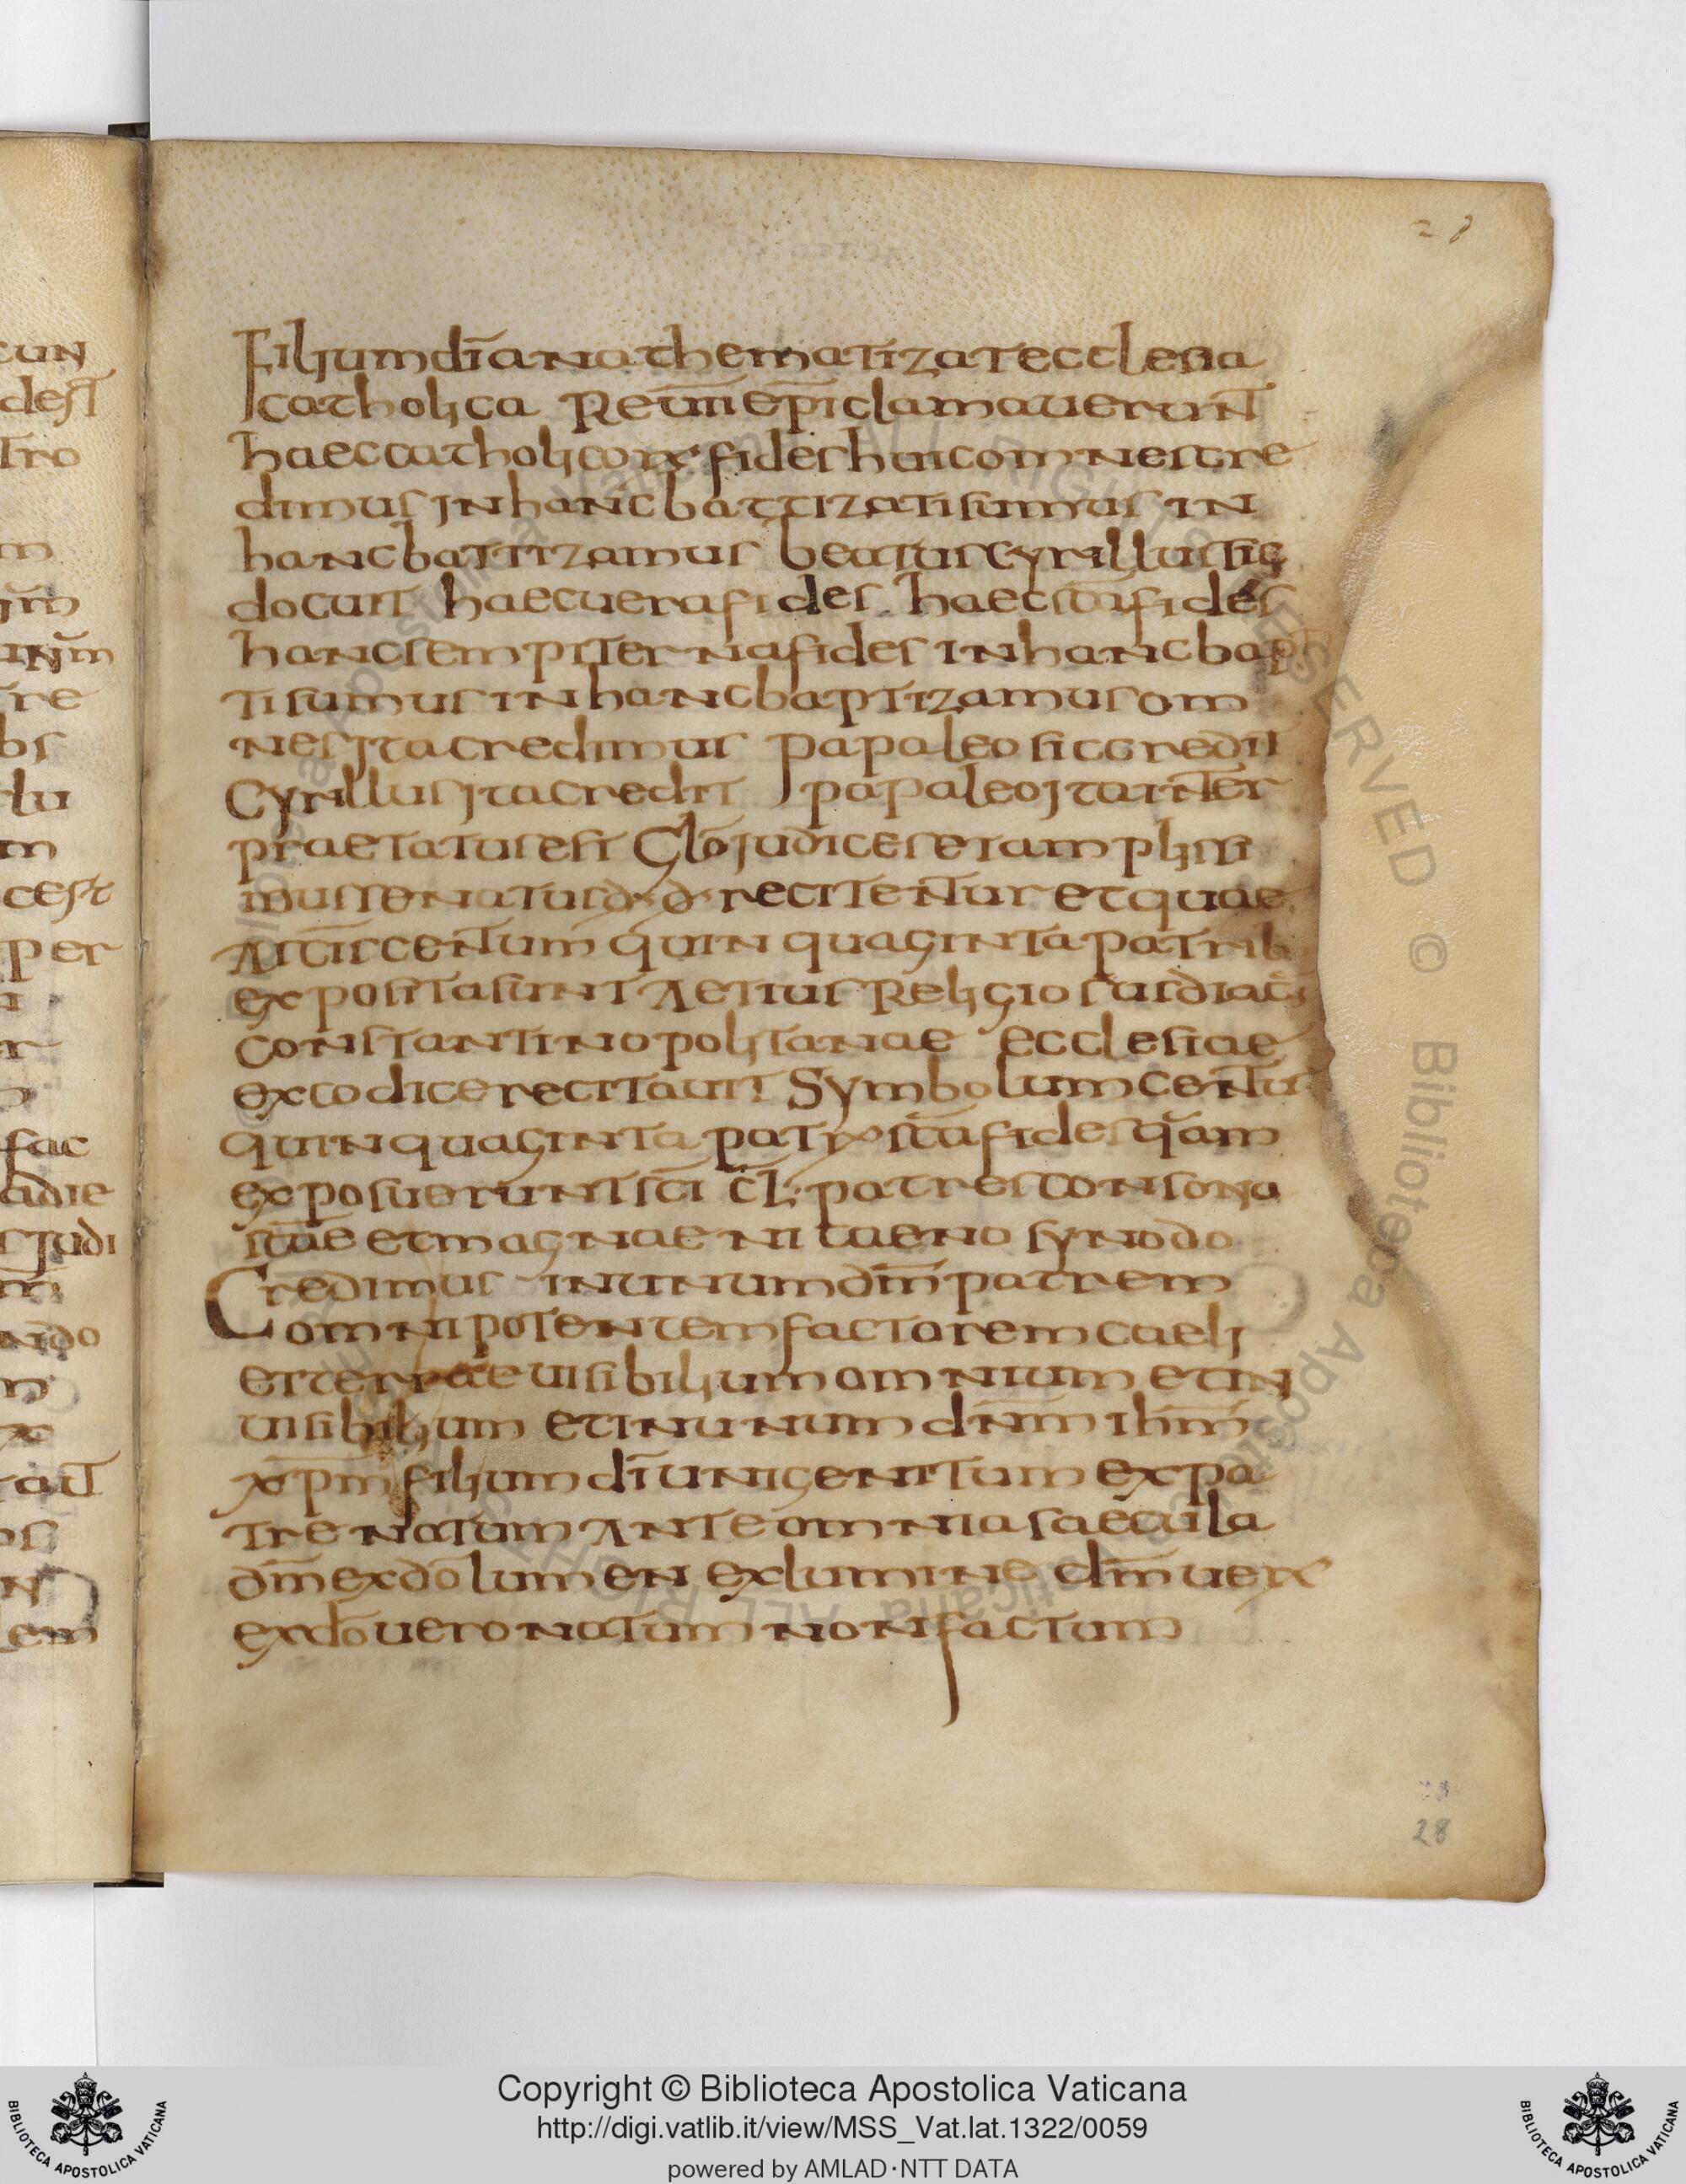 cun
dest
tro
m
re
bs
lu
m
cest
per
fac
adie
judi
ndo
aut
em
28
Filium dī anathematizat ecclesia
catholica Reūm ep̄i clamauerunt
haec catholicorx fides huic omnes cre
dimus in hanc battizati sumus in
hanc battizamus beatus cyrillus sic
docuit haec uera fides haec sc̄a fides
hanc sempiterna fides in hanc bap
ti sumus in hanc baptizamus om
nes ita credimus papa leo sic credit
Cyrillus ita credit papa leo ita inter
praetatus est Glō judices et amplissi
mus senatus d·d· recitentur et quae
A sc̄is centum quinquaginta patrib
exposita sunt Aetius Religiosus diac̄
constantinopolitanae ecclesiae
ex codice recitauit Symbolum centū
quinquaginta patrx sc̄a fides quam
exposuerunt sc̄i c̄l· patres consona
sc̄ae et magnae nicaeno synodo
Credimus in unum dm̄ patrem
omnipotentem factorem caeli
et terrae uisibilium omnium et in
uisibilium et in unum dn̄m ihm̄
xp̄m filium dī unigenitum ex pa
tre natum Ante omnia saecula
dm̄ ex dō lumen ex lumine dm̄ uerx
ex dō uero natum non factum
28
Copyright © Biblioteca Apostolica Vaticana
http://digi.vatlib.it/view/MSS_Vat.lat.1322/0059
powered by AMLAD·NTT DATA
BIBLIOTECA APOSTOLICA VATICANA
BIBLIOTECA APOSTOLICA VATICANA